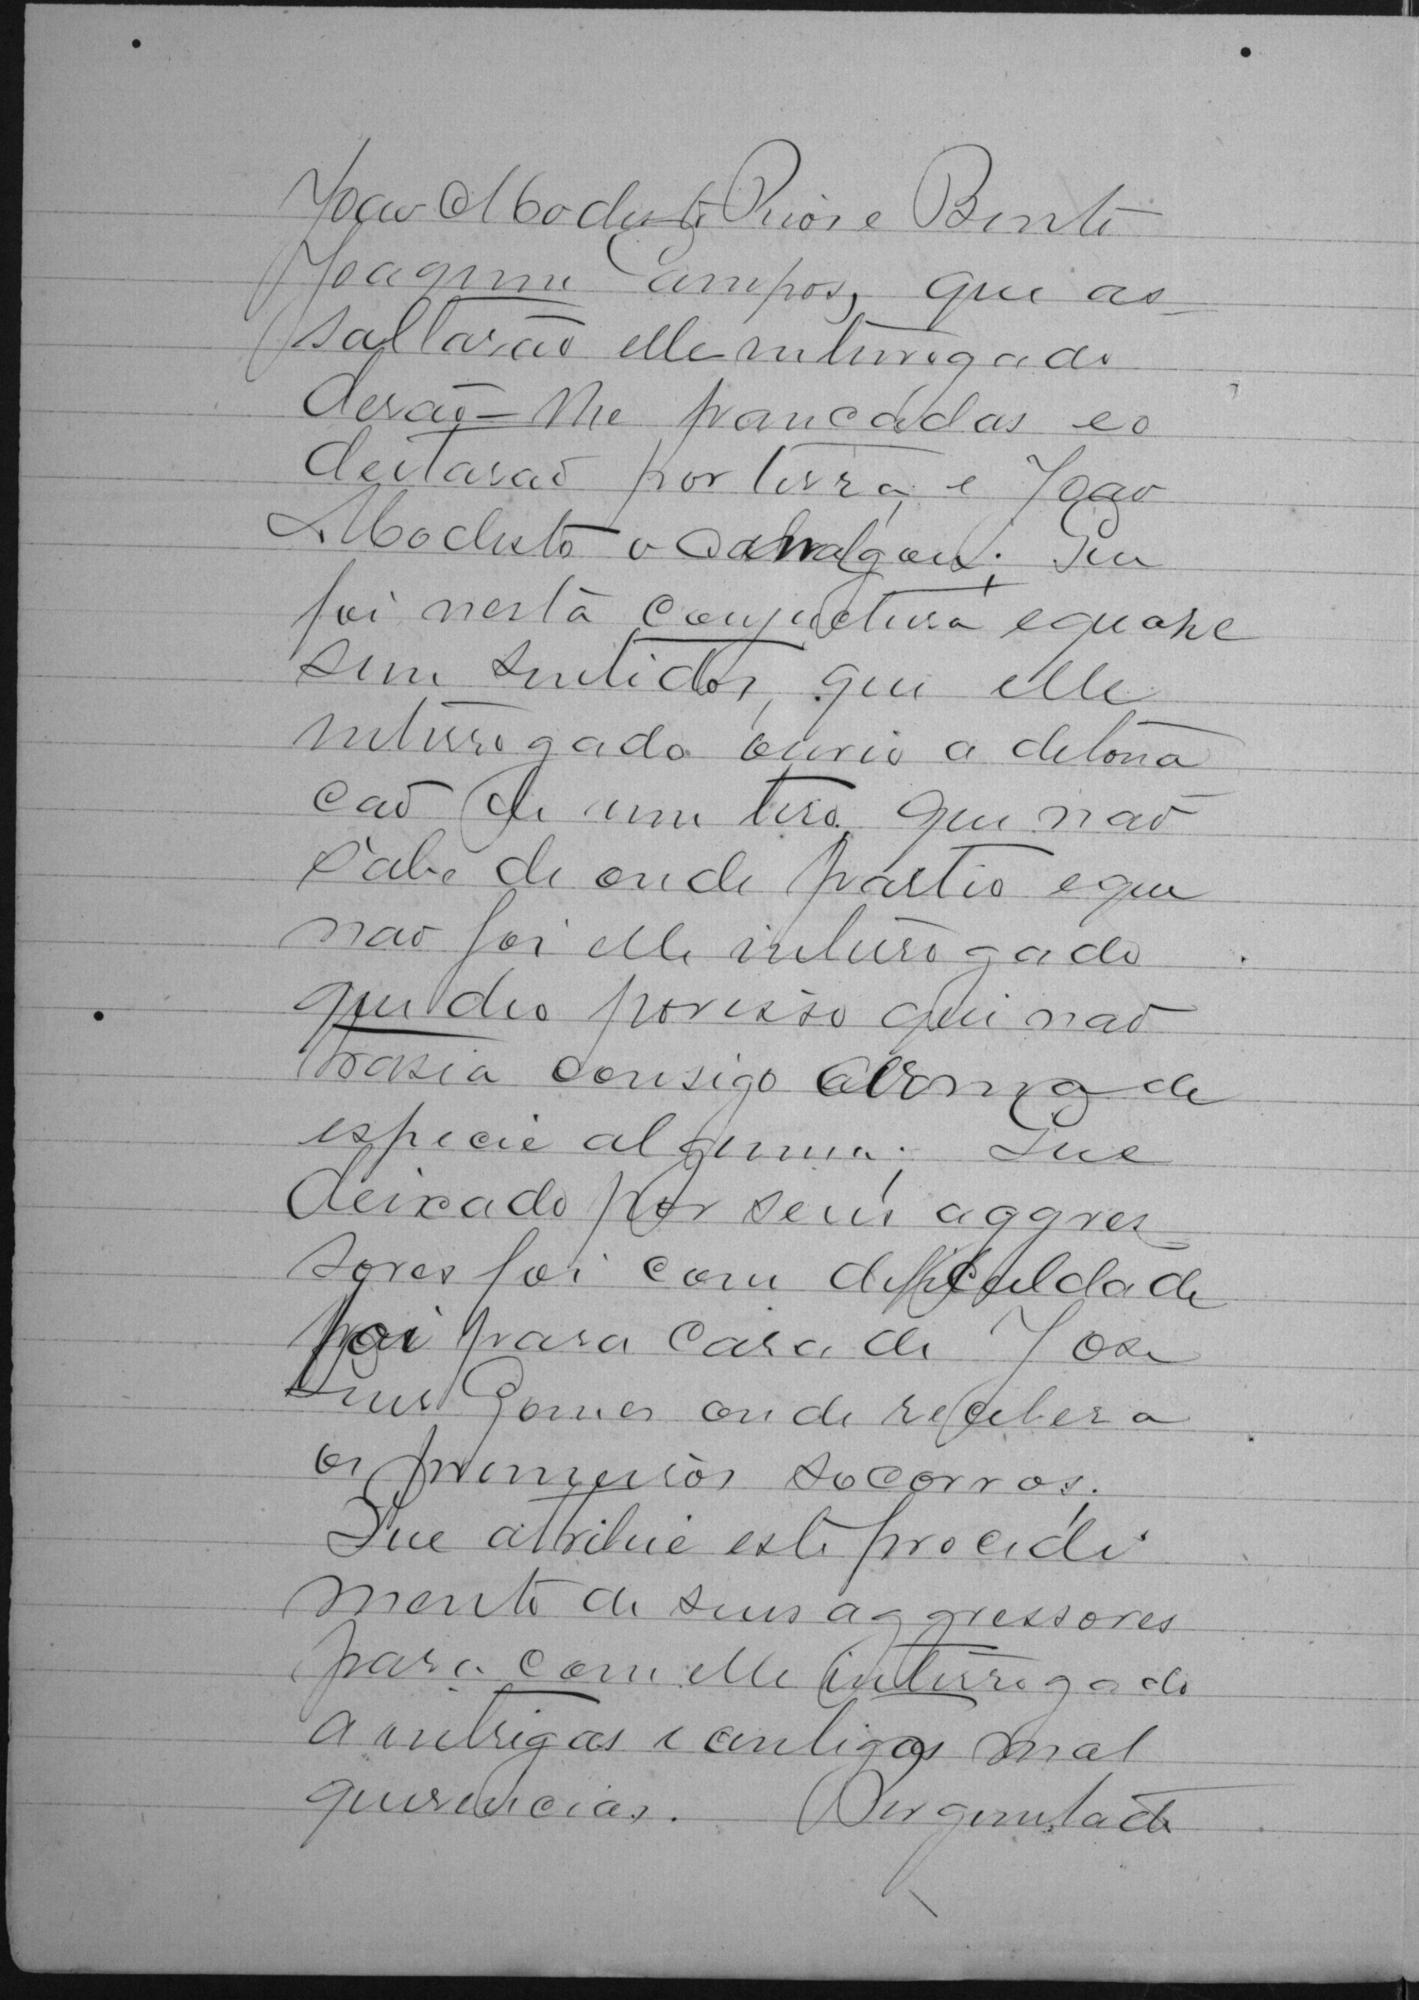 João Modesto Prior e Bento
Joaquim Campos, que as-
saltarão elle interrogado
derão-lhe pancadas e o
deitarão por terra, e João
Modesto o cavalgou; Que
foi nesta conjuctura e quase
sem sentidos, que elle
interrogado ouvio a detona
cão de um tiro, que não
sabe de onde partio e que
não foi elle interrogado
que deo por isso que não
trasia consigo arma de
especie alguma; Que
deixado por seus aggres-
sores foi com difficuldade
foi para casa de José
Luis Gomes onde recebera
os primeiros socorros;
Que atribue este procedi
mento de seus aggressores
para com elle interrogado
a intrigas e antigas mal
querencias. Perguntado